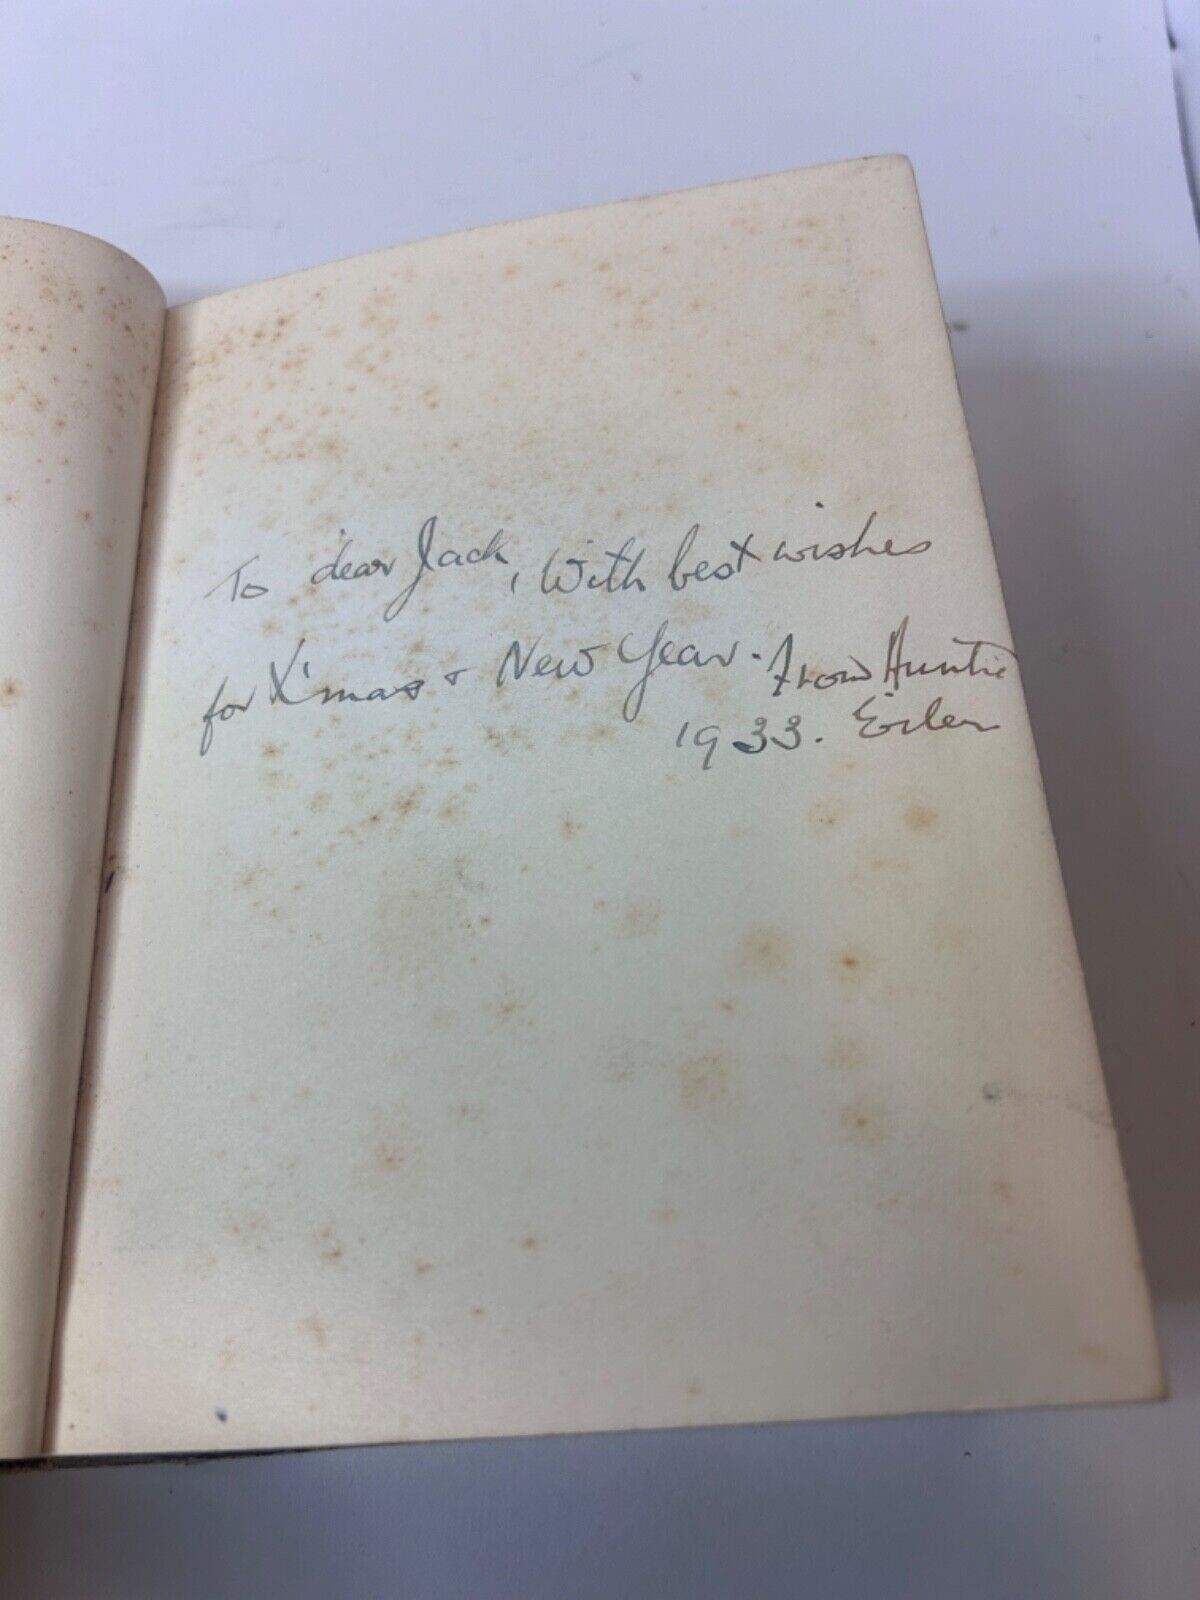 To dear Jack, With best wishes
for X'mas & New Year. From Auntie
1933.